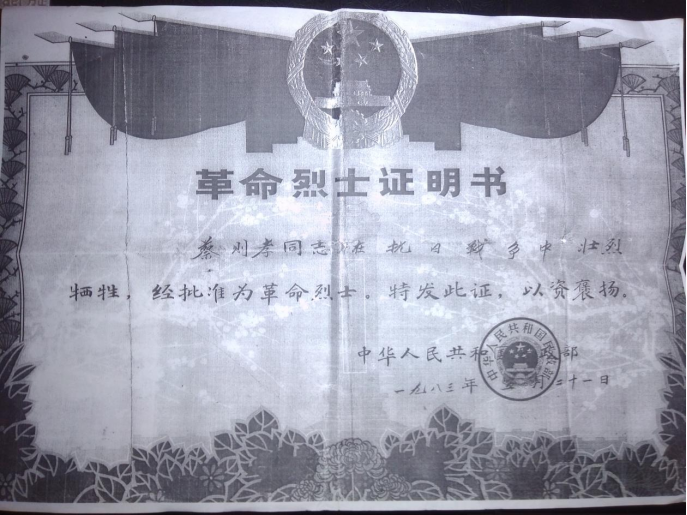 革命烈士证明书
蔡则孝同志在抗日战争中壮烈
牺牲，经批准为革命烈士。特发此证，以资褒扬。
中华人民共和 政部
一九八三年 月二十一日
中华人民共和国民政部